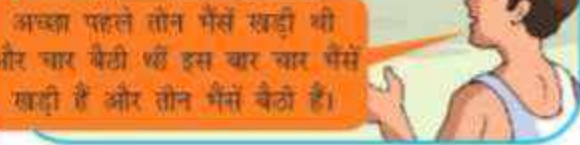 अच्छा पहले तीन भैंसें खड़ी थी
और चार बैठी थीं इस बार चार भैंसें
खड़ी हैं और तीन भैंसें बैठी हैं।